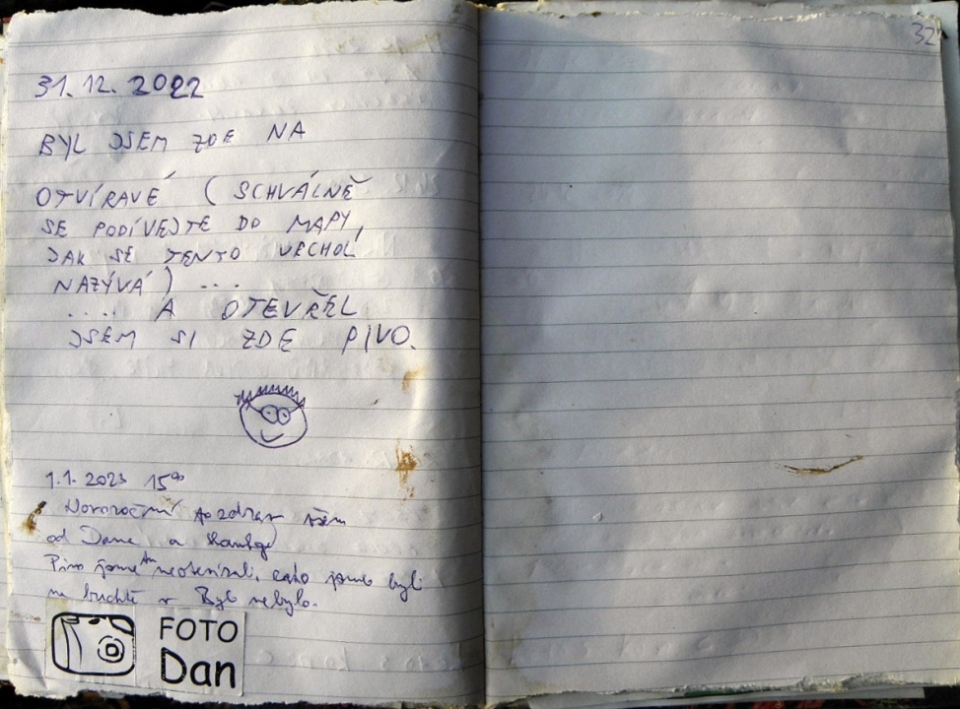 32
31.12.2022
BYL JSEM ZDE NA
OTVÍRAVÉ (SCHVÁLNĚ
SE PODÍVEJTE DO MAPY,
JAK SE TENTO VRCHOL
NAZÝVÁ) ...
.... A OTEVŘEL
JSEM SI ZDE PIVO.
1.1.2023 15⁰⁰
Novoroční pozdrav všem
od Dana a
Pivo jsme neotevírali, zato jsme byli
na buchtě v nebylo.
FOTO
Dan